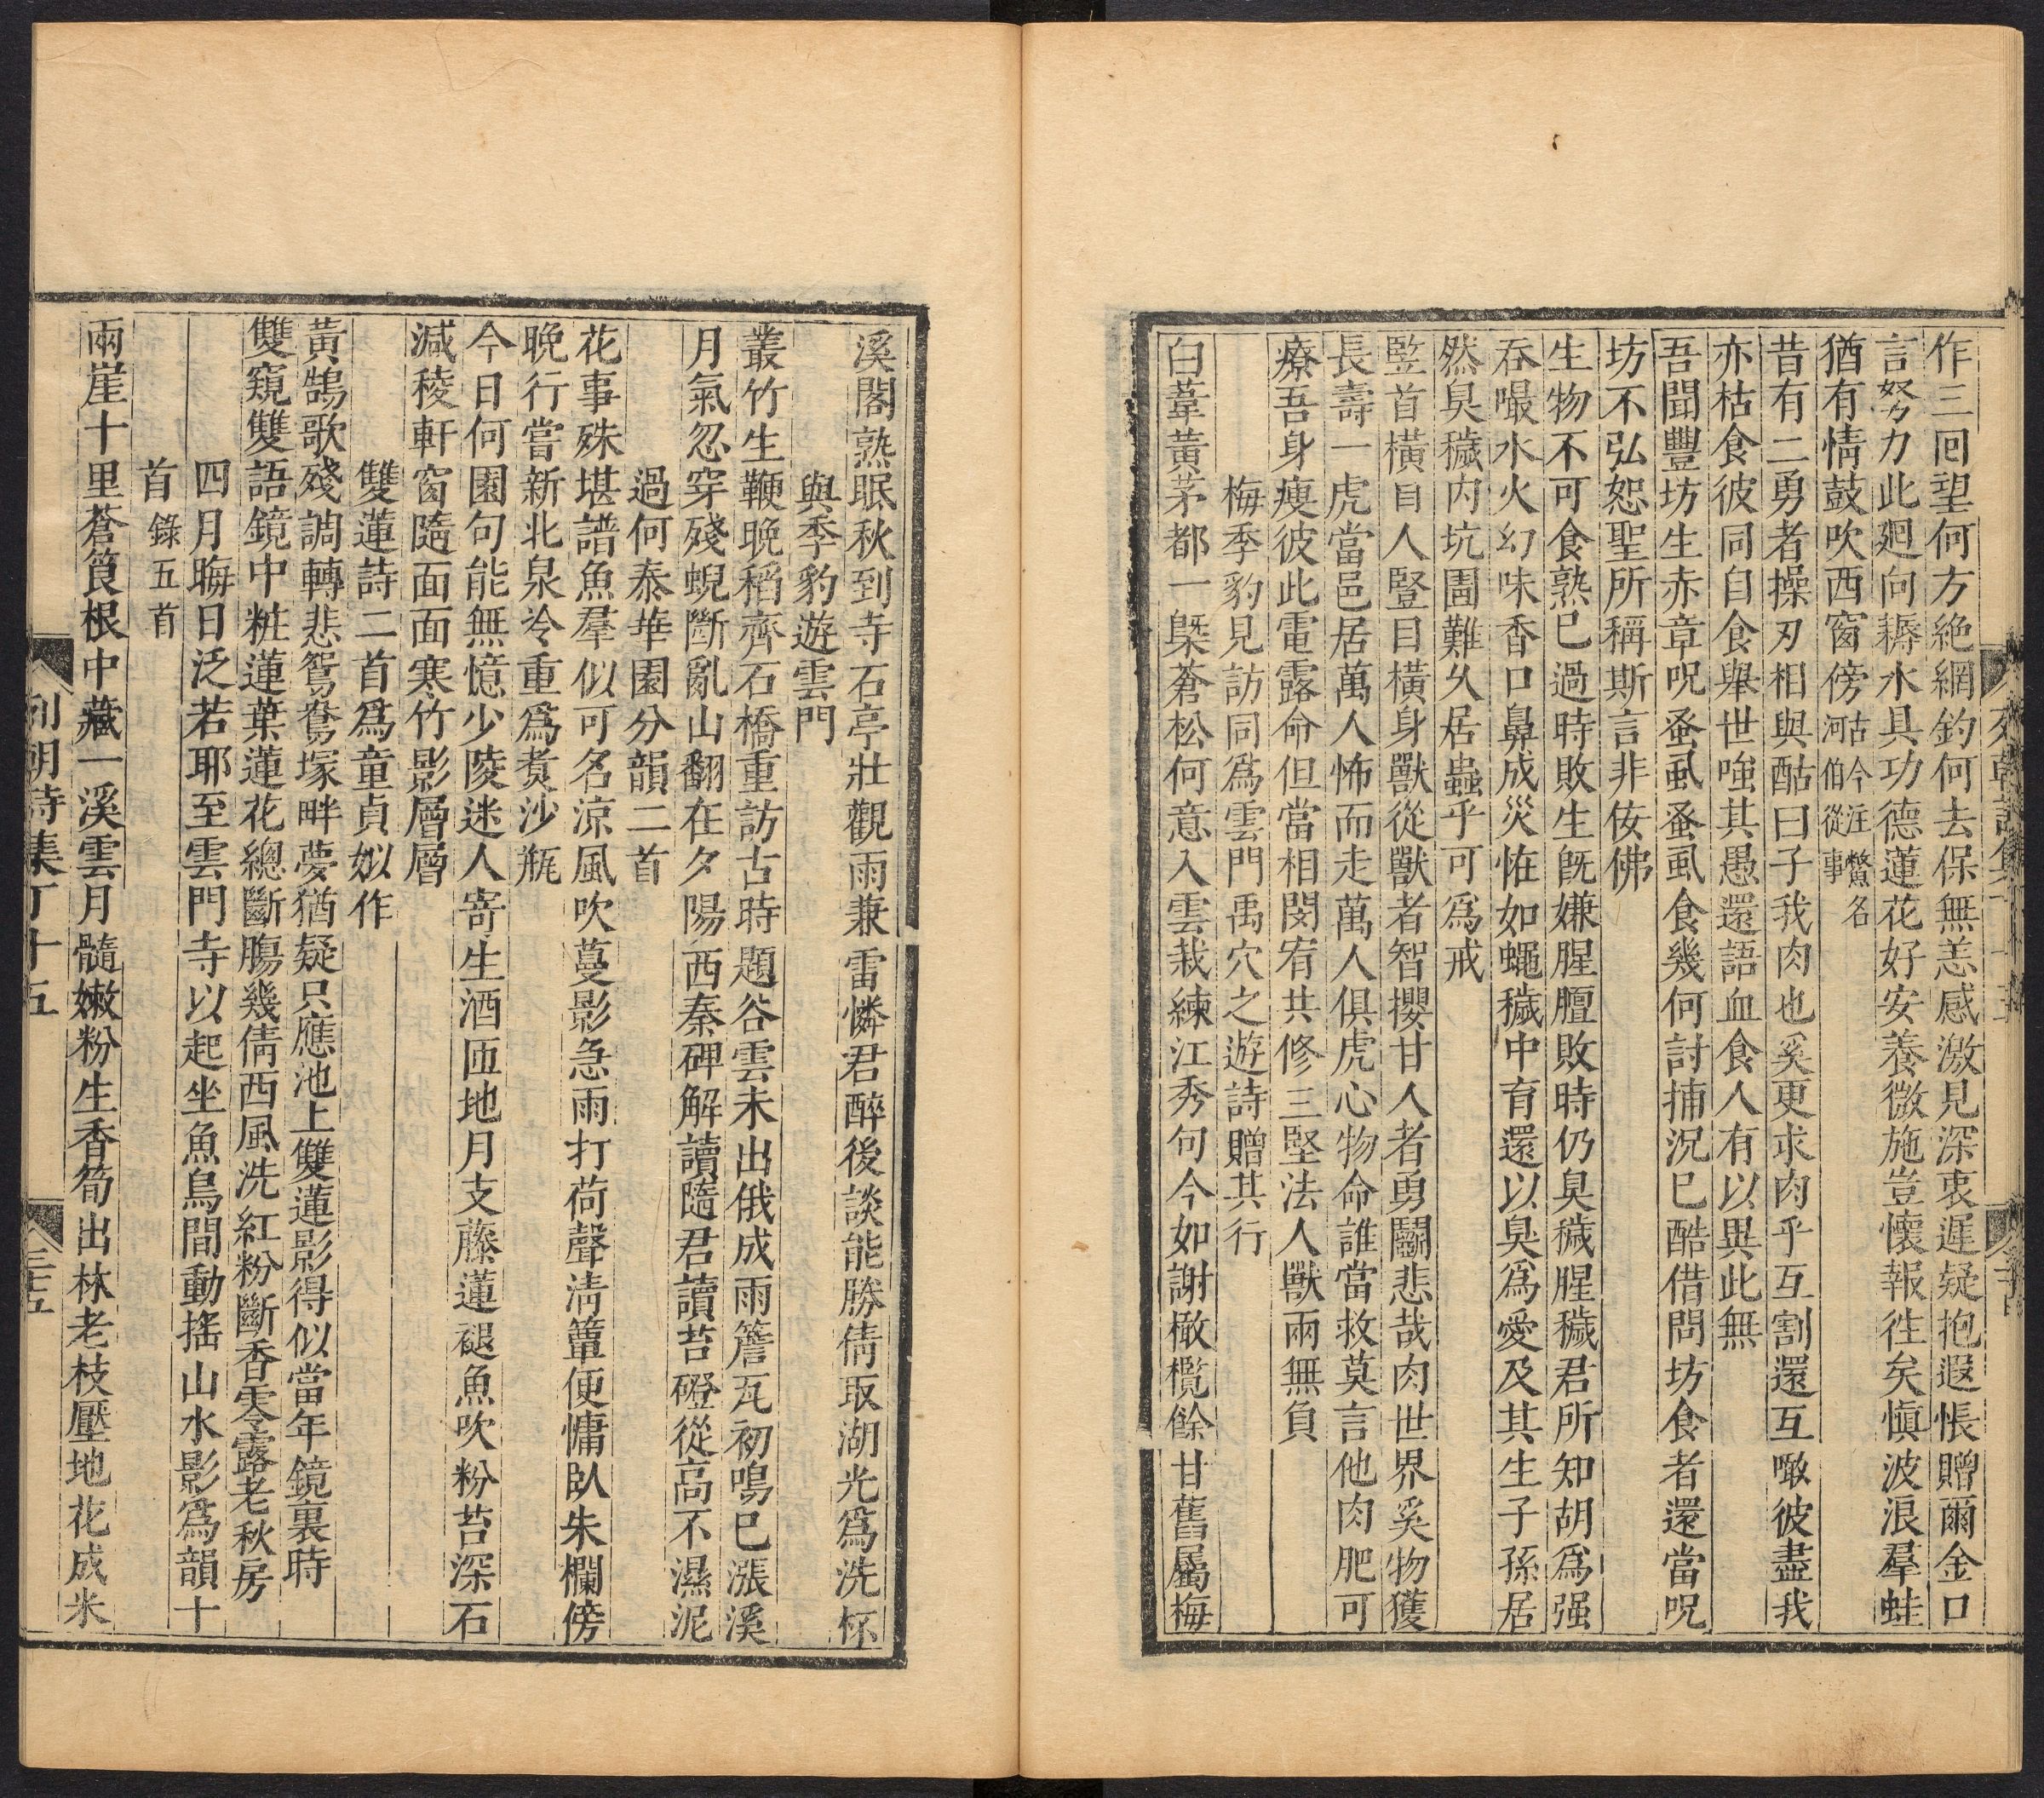 作三囘望何方絶網釣何去保無恙感激見深衷遲疑抱遐悵贈爾金口
言努力此廻向耨水具功德蓮花好安養微施豈懷報徃矣愼波浪羣蛙
猶有情鼓吹西窗傍古今注鱉名河伯從事
昔有二勇者操刃相與酤曰子我肉也奚更求肉乎互割還互噉彼盡我
亦枯食彼同自食舉世嗤其愚還語血食人有以異此無
吾聞豐坊生赤章呪蚤虱蚤虱食幾何討捕況已酷借問坊食者還當呪
坊不弘恕聖所稱斯言非佞佛
生物不可食熟已過時敗生旣嫌腥膻敗時仍臭穢腥穢君所知胡爲强
吞嘬水火幻味香口鼻成災怪如蠅穢中育還以臭爲愛及其生子孫居
然臭穢内坑圊難久居蟲乎可爲戒
竪首橫目人豎目橫身獸從獸者智攖甘人者勇鬭悲哉肉世界奚物獲
長壽一虎當邑居萬人怖而走萬人俱虎心物命誰當救莫言他肉肥可
療吾身瘦彼此電露命但當相閔宥共修三堅法人獸兩無負
梅季豹見訪同爲雲門禹穴之遊詩贈其行
白葦黃茅都一槩蒼松何意入雲栽練江秀句今如謝橄欖餘甘舊屬梅
溪閣熟眠秋到寺石亭壯觀雨兼雷憐君醉後談能勝倩取湖光爲洗杯
與季豹遊雲門
叢竹生鞭晚稻齊石橋重訪古時題谷雲未出俄成雨簷瓦初鳴已漲溪
月氣忽穿殘蜺斷亂山翻在夕陽西秦碑解讀隨君讀苔磴從高不濕泥
過何泰華園分韻二首
花事殊堪譜魚羣似可名涼風吹蔓影急雨打荷聲淸簟便慵臥朱欄傍
晚行嘗新北泉冷重爲煑沙瓶
今日何園句能無憶少陵迷人寄生酒匝地月支藤蓮褪魚吹粉苔深石
減稜軒窗隨面面寒竹影層層
雙蓮詩二首爲童貞姒作
黃鵠歌殘調轉悲鴛鴦塚畔夢猶疑只應池上雙蓮影得似當年鏡裏時
雙窺雙語鏡中粧蓮葉蓮花總斷腸幾倩西風洗紅粉斷香零露老秋房
四月晦日泛若耶至雲門寺以起坐魚鳥間動搖山水影爲韻十
首錄五首
兩崖十里蒼筤根中藏一溪雲月髓嫩粉生香筍出林老枝壓地花成米
列朝詩集丁十五
三十五